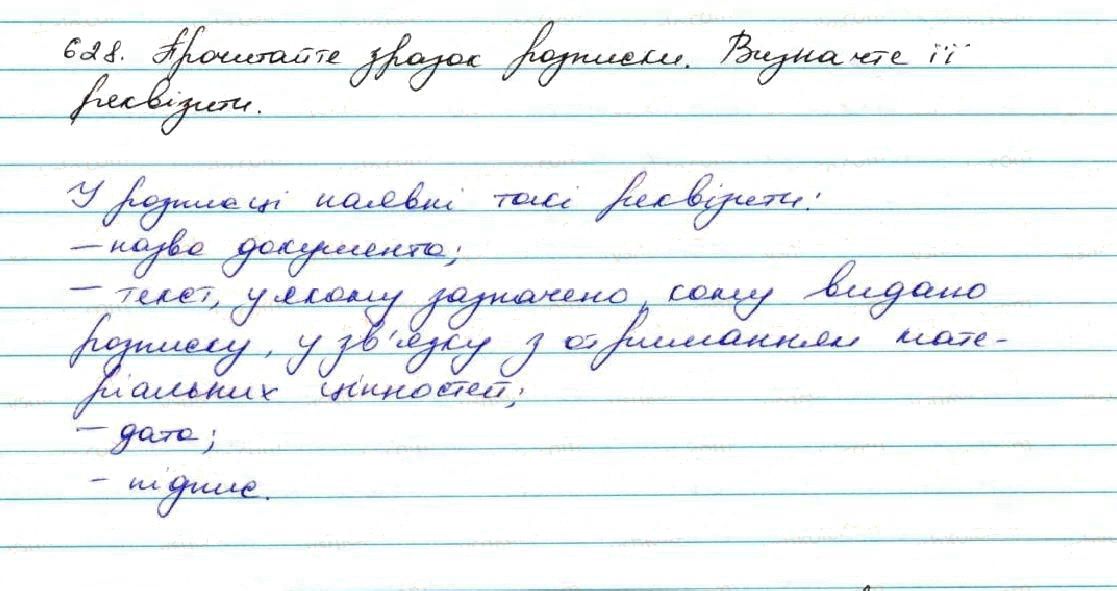 628. Прочитайте зразок розписки. Визначте її
реквізити.
У розписці наявні такі реквізити:
– назва документа;
– текст, у якому зазначено, кому видано
розписку, у зв'язку з отриманням мате-
ріальних цінностей;
– дата;
– підпис.